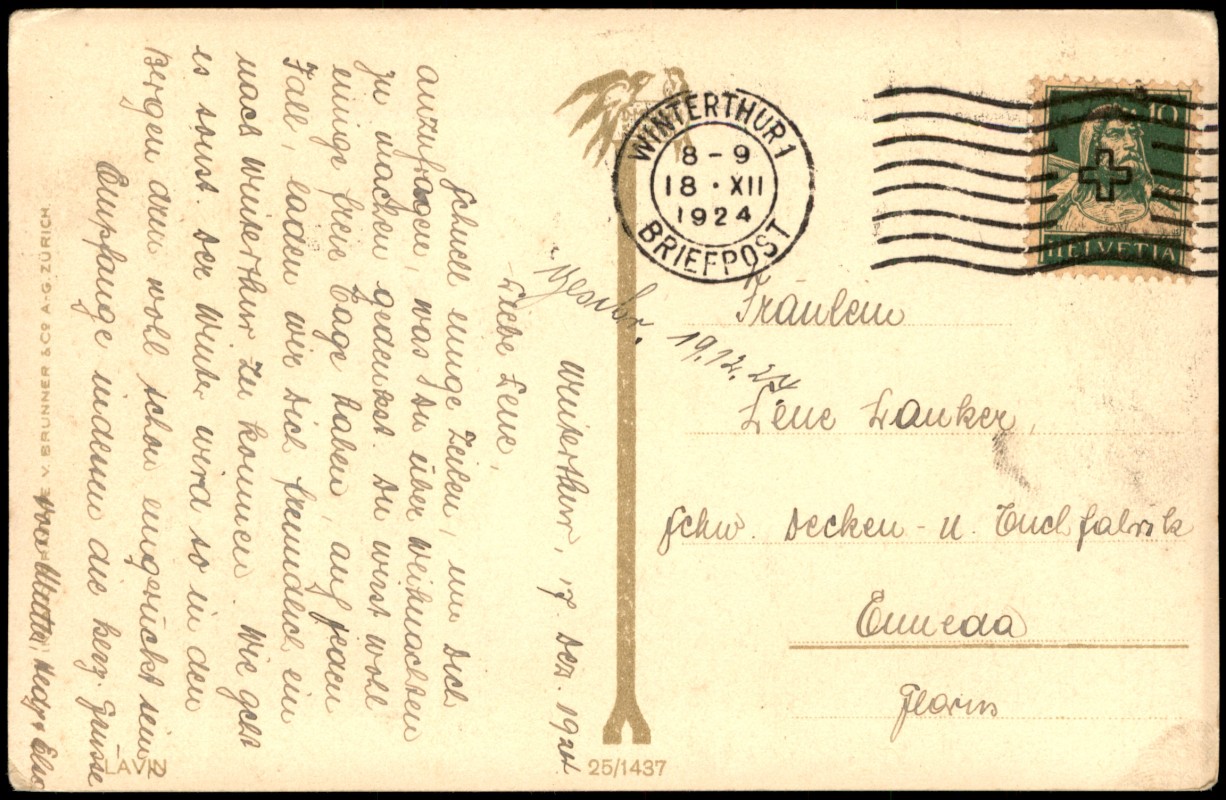 Winterthur, 17. Dez. 1924
Liebe Lene,
Schnell einige Zeilen, um Dich
anzufragen, was Du über Weihnachten
zu machen gedenkst. Du wirst wohl
einige freie Tage haben, auf jeden
Fall, laden wir Dich freundlich ein
nach Winterthur zu kommen. Wie geht
es sonst. Der Winter wird so in den
Bergen drin wohl schon eingerückt sein?
Empfange indessen die herz. Grüsse
von Mutter, Hedy, Elsa
V. BRUNNER & CO A.-G. ZÜRICH.
LAVIN
25/1437
WINTERTHUR 1
8-9
18·XII
1924
BRIEFPOST
10
HELVETIA
19.12.24
Fräulein
Lene Lanker,
Schw. Decken- u. Tuchfabrik
Enneda
Glarus